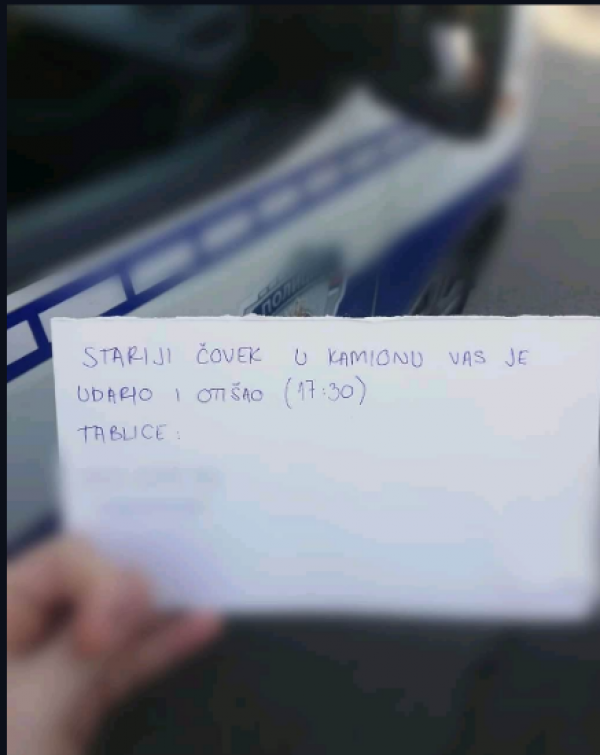 STARIJI ČOVEK U KAMIONU VAS JE
UDARIO I OTIŠAO (17:30)
TABLICE: